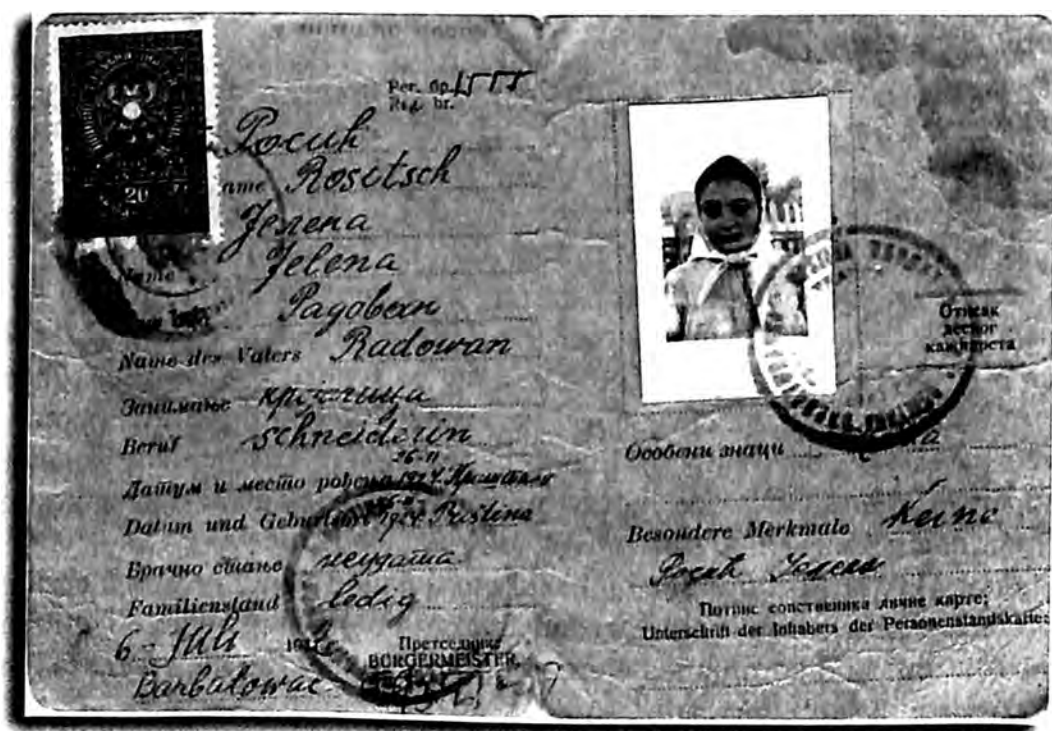 20
Рег. бр.
Reg. br.
Росић
Rositsch
Јелена
Jelena
Радован
Name des Vaters Radowan
Занимање
Beruf schneiderin
26-II
Датум и место рођења 1924.
Datum und Geburtsort 1924 Pristina
Брачно стање неудата
Familienstand ledig
6 - Juli
Претседник
BÜRGERMEISTER,
Barbatowac
Отисак
десног
кажипрста
Особени знаци
Besondere Merkmale Keine
Росић Јелена
Потпис сопственика личне карте:
Unterschrift der Inhabers der Personenstandskarte: